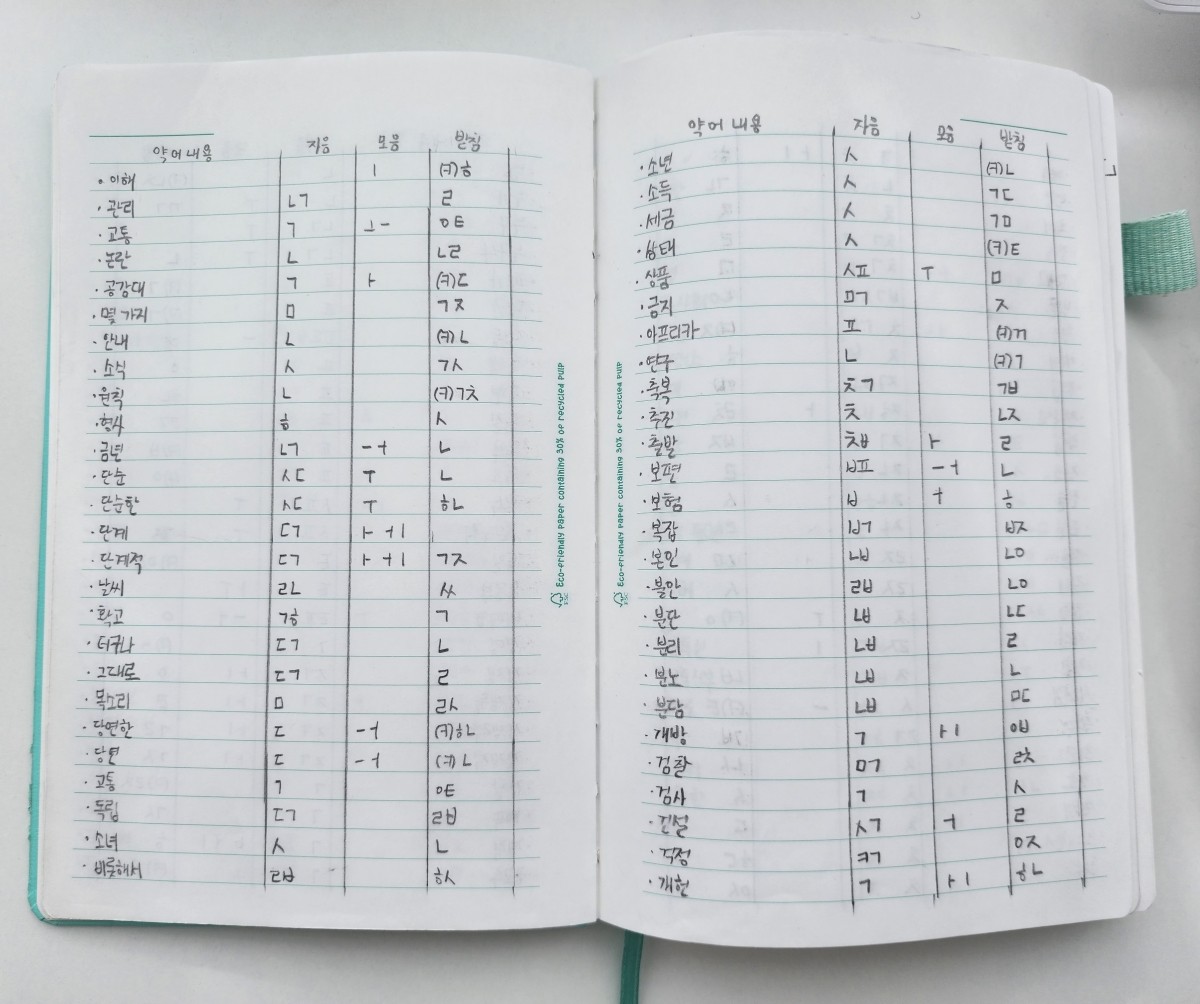 약어 내용 자음 모음 받침
· 이해 ㅣ (ㅋ)ㅎ
· 관리 ㄴㄱ ㄹ
· 교통 ㄱ ㅗㅡ ㅇㅌ
· 논란 ㄴ ㄴㄹ
· 공감대 ㄱ ㅏ (ㅋ)ㄷ
· 몇 가지 ㅁ ㄱㅈ
· 안내 ㄴ (ㅋ)ㄴ
· 소식 ㅅ ㄱㅅ
· 원칙 ㄴ (ㅋ)ㄱㅊ
· 형사 ㅎ ㅅ
· 금년 ㄴㄱ ㅡㅕ ㄴ
· 단순 ㅅㄷ ㅜ ㄴ
· 단순한 ㅅㄷ ㅜ ㅎㄴ
· 단계 ㄷㄱ ㅏㅓㅣ
· 단계적 ㄷㄱ ㅏㅓㅣ ㄱㅈ
· 날씨 ㄹㄴ ㅆ
· 확고 ㄱㅎ ㄱ
· 더구나 ㄷㄱ ㄴ
· 그대로 ㄷㄱ ㄹ
· 목소리 ㅁ ㄹㅅ
· 당연한 ㄷ ㅡㅕ (ㅋ)ㅎㄴ
· 당연 ㄷ ㅡㅕ (ㅋ)ㄴ
· 고통 ㄱ ㅇㅌ
· 독립 ㄷㄱ ㄹㅂ
· 소녀 ㅅ ㄴ
· 비롯해서 ㄹㅂ ㅎㅅ
Eco-friendly paper containing 30% of recycled pulp
약어 내용 자음 모음 받침
· 소년 ㅅ (ㅋ)ㄴ
· 소득 ㅅ ㄱㄷ
· 세금 ㅅ ㄱㅁ
· 상태 ㅅ (ㅋ)ㅌ
· 상품 ㅅㅍ ㅜ ㅁ
· 금지 ㅁㄱ ㅈ
· 아프리카 ㅍ (ㅋ)ㄲ
· 연구 ㄴ (ㅋ)ㄱ
· 축복 ㅊㄱ ㄱㅂ
· 추진 ㅊ ㄴㅈ
· 출발 ㅊㅂ ㅏ ㄹ
· 보편 ㅂㅍ ㅡㅕ ㄴ
· 보험 ㅂ ㅕ ㅎ
· 복잡 ㅂㄱ ㅂㅈ
· 본인 ㄴㅂ ㄴㅇ
· 불안 ㄹㅂ ㄴㅇ
· 분단 ㄴㅂ ㄴㄷ
· 분리 ㄴㅂ ㄹ
· 분노 ㄴㅂ ㄴ
· 분담 ㄴㅂ ㅁㄷ
· 개방 ㄱ ㅏㅣ ㅇㅂ
· 검찰 ㅁㄱ ㄹㅊ
· 검사 ㄱ ㅅ
· 건설 ㅅㄱ ㅓ ㄹ
· 걱정 ㅋㄱ ㅇㅈ
· 개헌 ㄱ ㅏㅣ ㅎㄴ
Eco-friendly paper containing 30% of recycled pulp